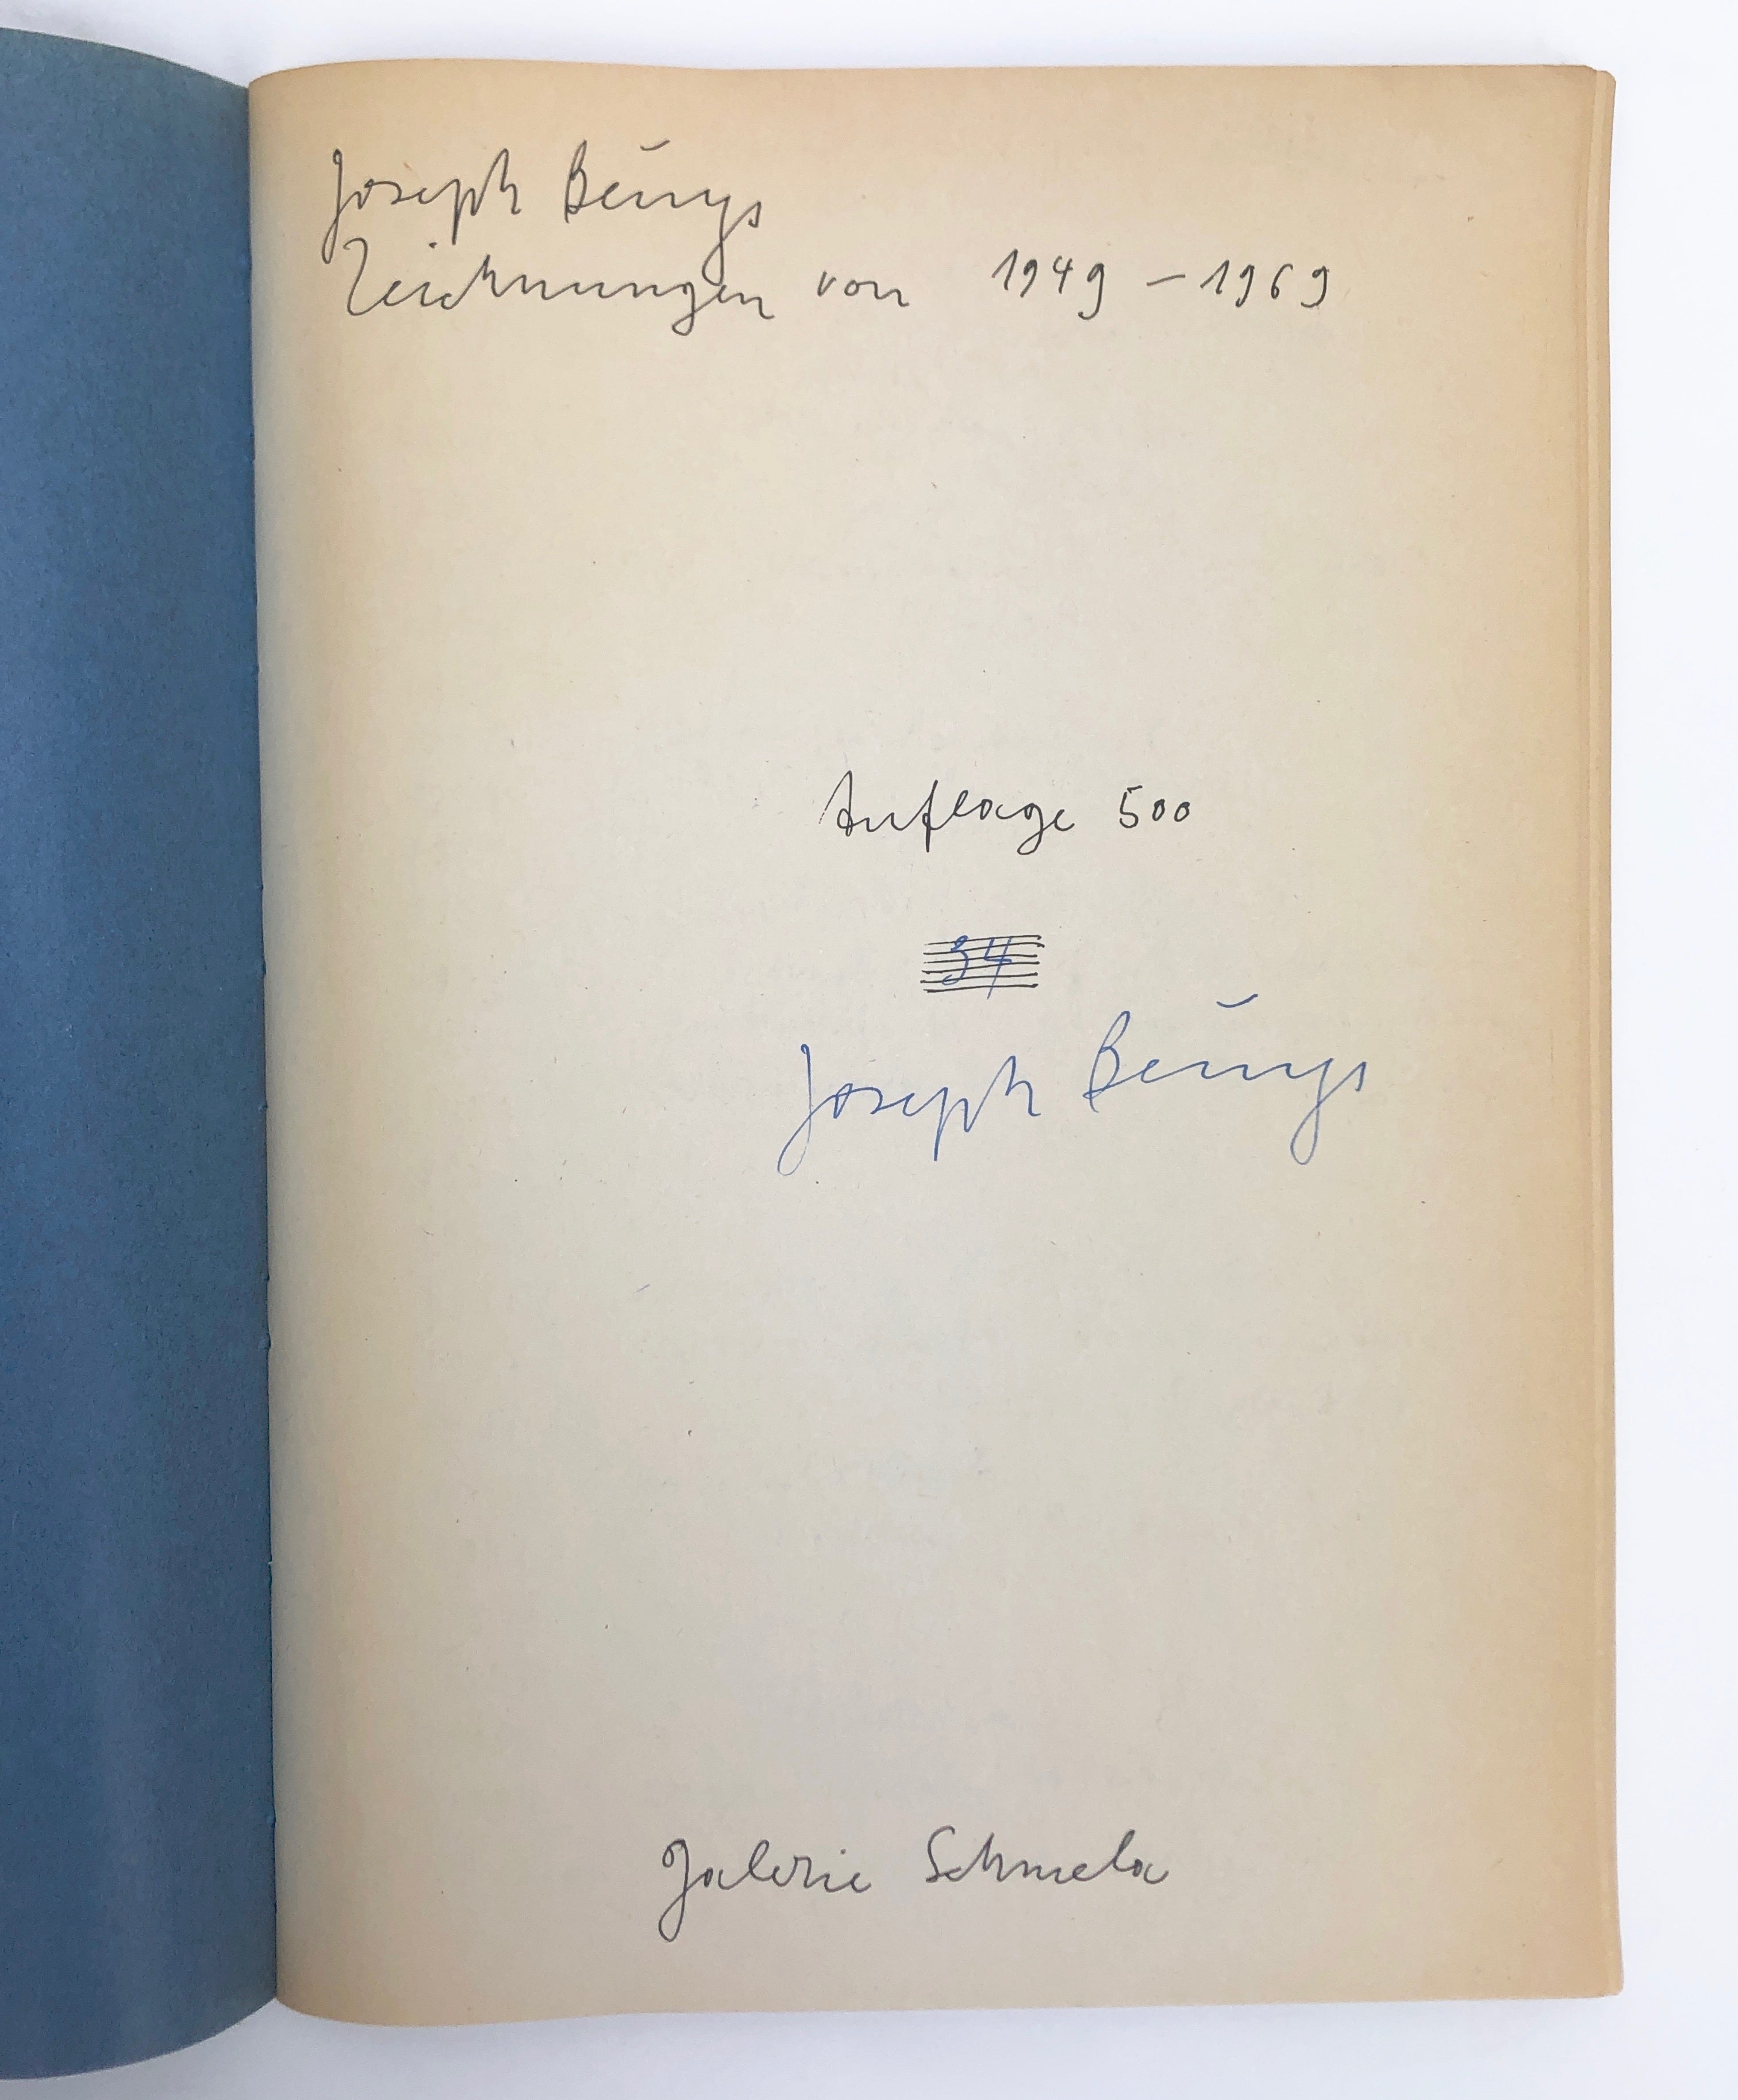 Joseph Beuys
Zeichnungen von 1949 – 1969
Auflage 500
34
Joseph Beuys
Galerie Schmela